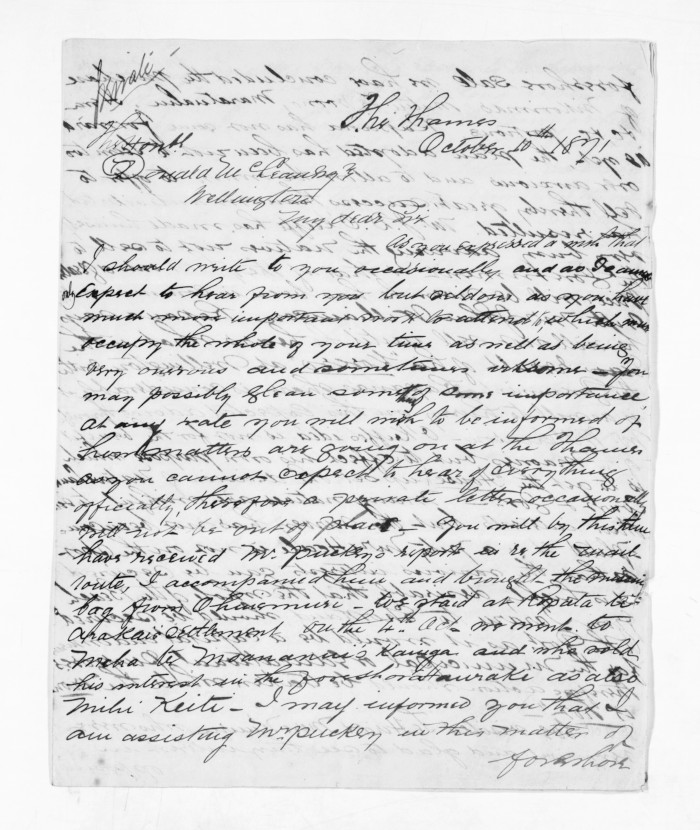 Private
The Thames
October 10th 1871
Honble
Donald McLean Esqr
Wellington
My dear Sir
As you expressed a wish that
I should write to you occasionally and as I cannot
only expect to hear from you but seldom as you have
much more important work to attend to which must
occupy the whole of your time as well as being
very onerous and sometimes irksome – You
may possibly glean something of some importance,
at any rate you will wish to be informed of
how matters are going on at the Thames
as you cannot expect to hear of everything
officially, therefore a private letter occasionally
will not be out of place – You will by this time
have received Mr Puckey's report in re the mail
route, I accompanied him and brought the mail
bag from Ohinemuri – We staid at Kopata te
Arakai's settlement on the 4th Oct we went to
Meha te Moananui's Kainga and who sold
his interest in the foreshore Hauraki as also
Mihi Keite – I may informed you that I
am assisting Mr Puckey in this matter of
foreshore